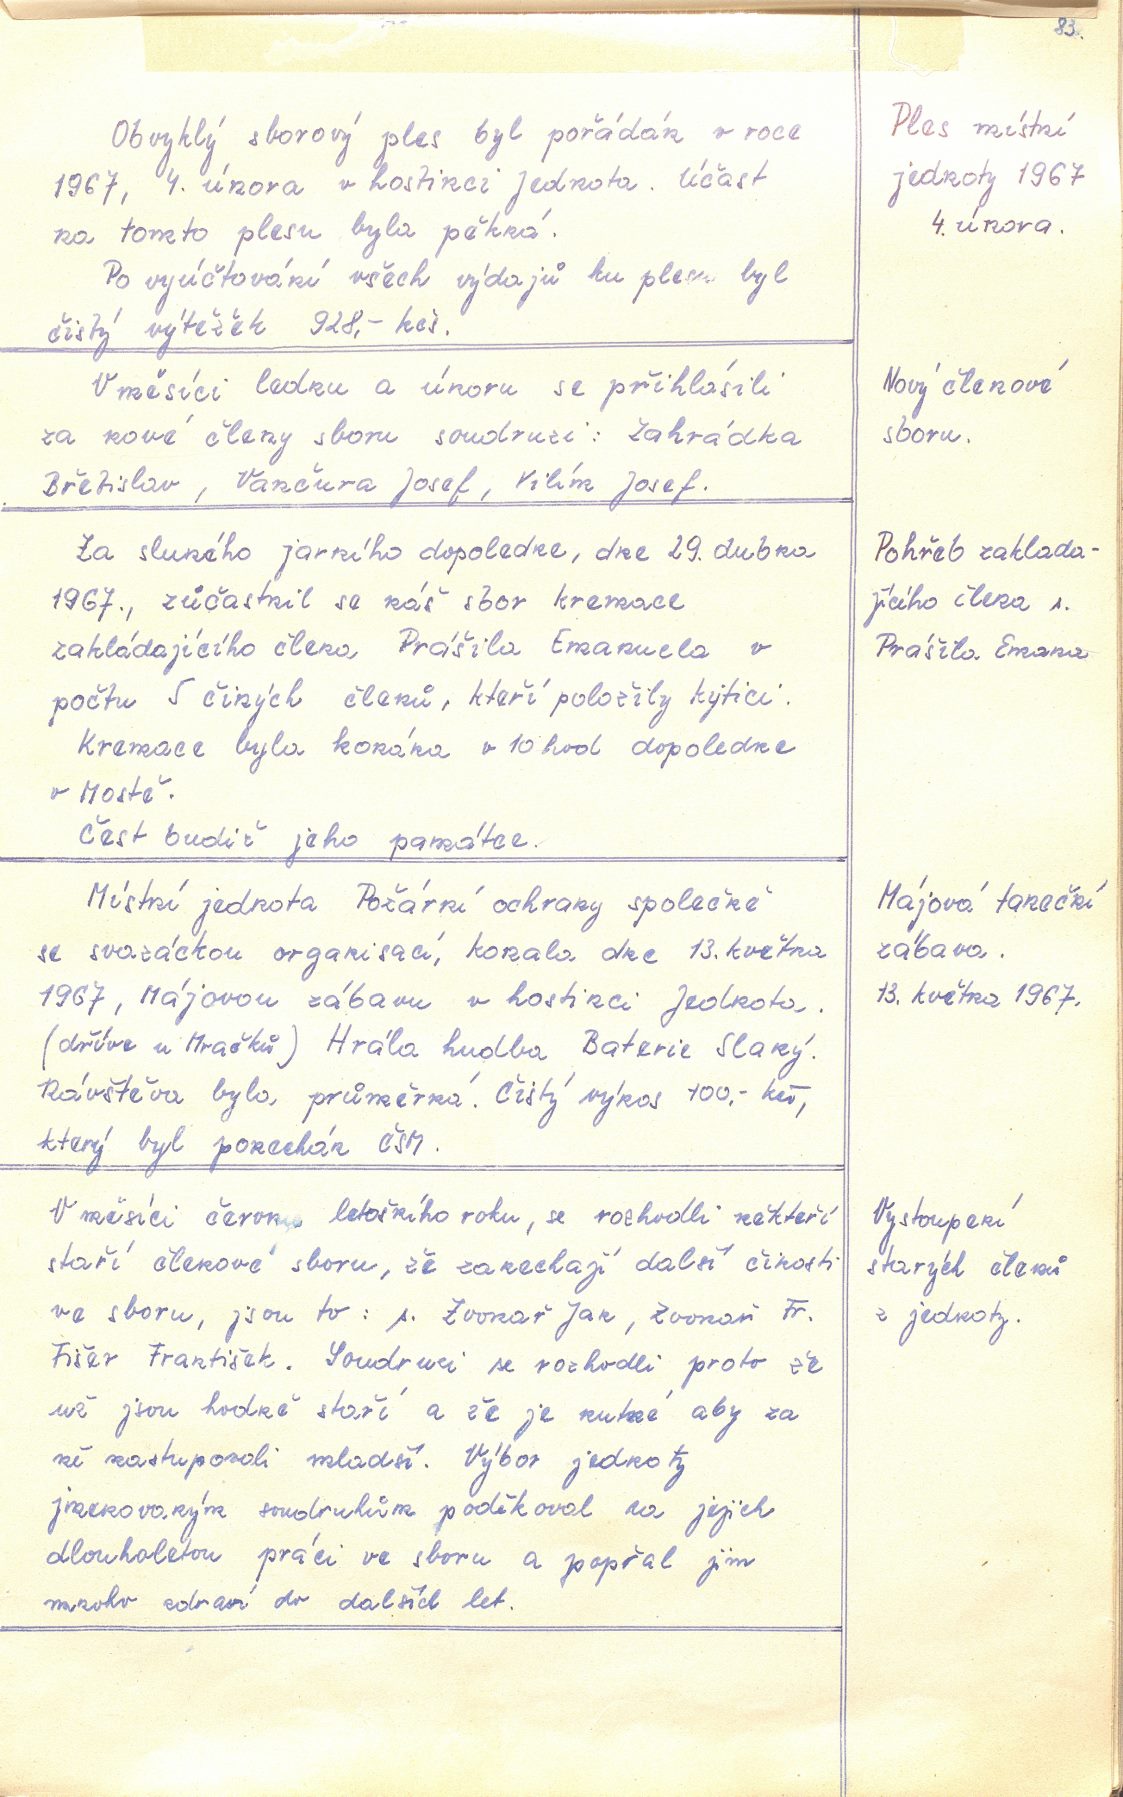 83.
Obvyklý sborový ples byl pořádán v roce
1967, 4. února v hostinci Jednota. Účast
na tomto plesu byla pěkná.
Po vyúčtování všech výdajů ku plesu byl
čistý výtěžek 928,- kčs.
Ples místní
jednoty 1967
4. února.
V měsíci lednu a únoru se přihlásili
za nové členy sboru soudruzi: Zahrádka
Břetislav, Vančura Josef, Vilím Josef.
Nový členové
sboru.
Za sluného jarního dopoledne, dne 29. dubna
1967., zůčastnil se náš sbor kremace
zakládajícího člena Prášila Emanuela v
počtu 5 činých členů, kteří položily kytici.
Kremace byla konána v 10 hod dopoledne
v Mostě.
Čest budiž jeho památce.
Pohřeb zaklada-
jícího člena s.
Prášila Emana
Místní jednota Požární ochrany společně
se svazáckou organisací, konala dne 13. května
1967, Májovou zábavu v hostinci Jednota.
(dříve u Mračků) Hrála hudba Baterie Slaný.
Návštěva byla průměrná. Čistý výnos 100,- kčs,
který byl ponechán ČSM.
Májová taneční
zábava.
13. května 1967.
V měsíci červnu letošního roku, se rozhodli někteří
staří členové sboru, že zanechají další činosti
ve sboru, jsou to: s. Zvonař Jan, Zvonař Fr.
Fišer František. Soudruzi se rozhodli proto že
už jsou hodně staří a že je nutné aby za
ně nastupovali mladší. Výbor jednoty
jmenovaným soudruhům poděkoval za jejich
dlouholetou práci ve sboru a popřál jim
mnoho zdraví do dalších let.
Vystoupení
starých členů
z jednoty.